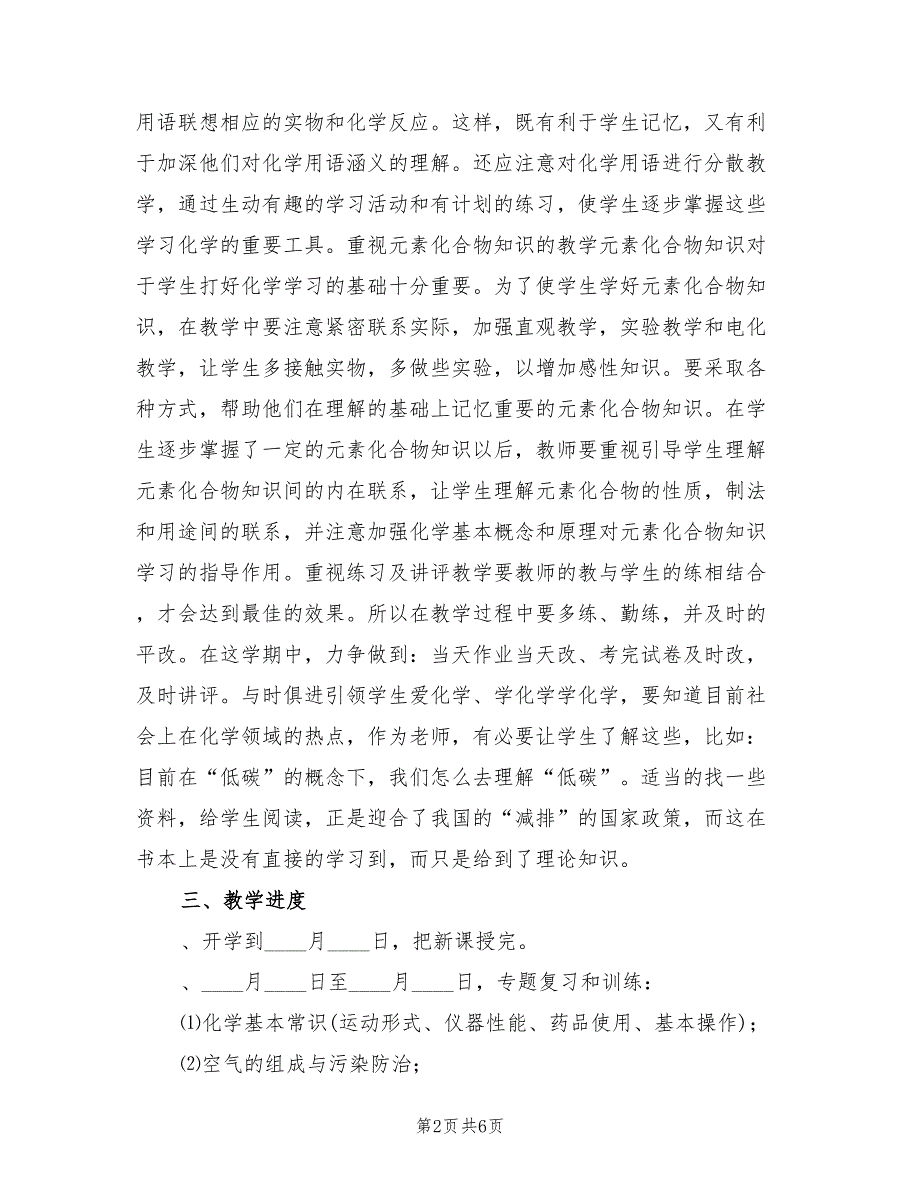 用语联想相应的实物和化学反应。这样，既有利于学生记忆，又有利
于加深他们对化学用语涵义的理解。还应注意对化学用语进行分散教
学，通过生动有趣的学习活动和有计划的练习，使学生逐步掌握这些
学习化学的重要工具。重视元素化合物知识的教学元素化合物知识对
于学生打好化学学习的基础十分重要。为了使学生学好元素化合物知
识，在教学中要注意紧密联系实际，加强直观教学，实验教学和电化
教学，让学生多接触实物，多做些实验，以增加感性知识。要采取各
种方式，帮助他们在理解的基础上记忆重要的元素化合物知识。在学
生逐步掌握了一定的元素化合物知识以后，教师要重视引导学生理解
元素化合物知识间的内在联系，让学生理解元素化合物的性质，制法
和用途间的联系，并注意加强化学基本概念和原理对元素化合物知识
学习的指导作用。重视练习及讲评教学要教师的教与学生的练相结合
，才会达到最佳的效果。所以在教学过程中要多练、勤练，并及时的
平改。在这学期中，力争做到：当天作业当天改、考完试卷及时改，
及时讲评。与时俱进引领学生爱化学、学化学学化学，要知道目前社
会上在化学领域的热点，作为老师，有必要让学生了解这些，比如：
目前在“低碳”的概念下，我们怎么去理解“低碳”。适当的找一些
资料，给学生阅读，正是迎合了我国的“减排”的国家政策，而这在
书本上是没有直接的学习到，而只是给到了理论知识。
三、教学进度
、开学到____月____日，把新课授完。
、____月____日至____月____日，专题复习和训练：
⑴化学基本常识(运动形式、仪器性能、药品使用、基本操作)；
⑵空气的组成与污染防治；
第2页 共6页